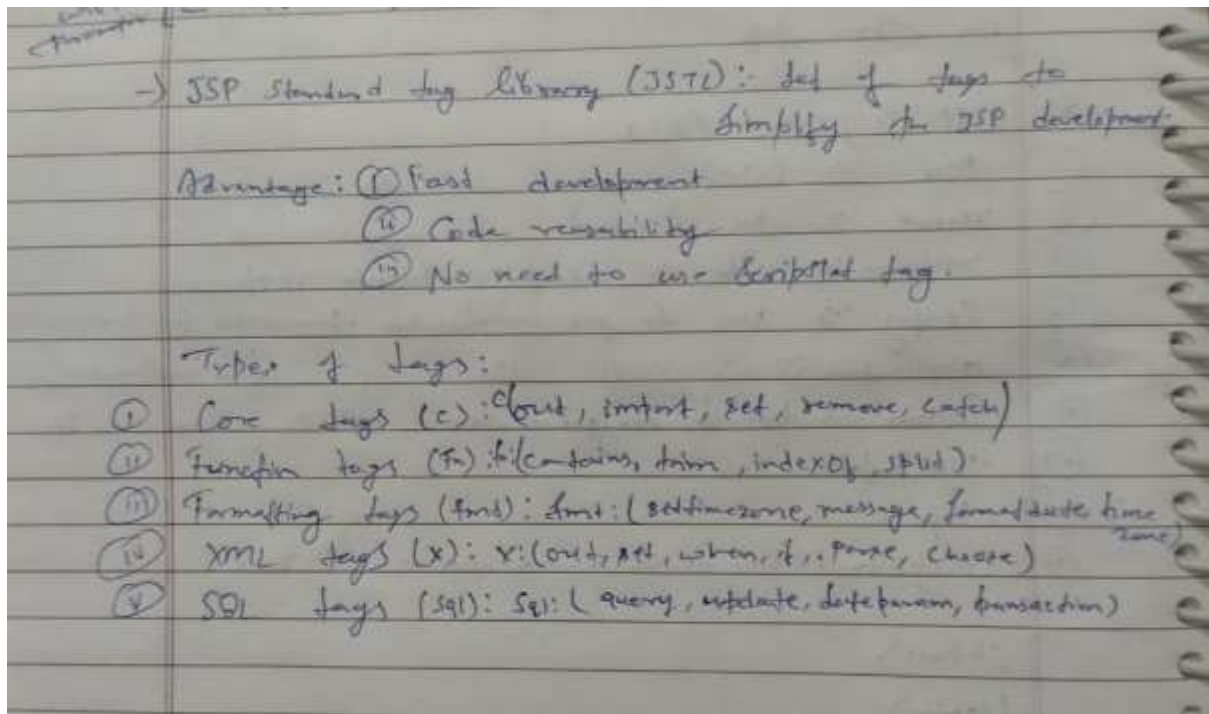 → JSP Standard tag library (JSTL): Set of tags to
simplify the JSP development.
Advantage: (i) Fast development
(ii) Code reusability
(iii) No need to use scriptlet tag.
Types of tags:
(i) Core tags (c): c(out, import, set, remove, catch)
(ii) Function tags (fn): fn(contains, trim, indexOf, split)
(iii) Formatting tags (fmt): fmt: (settimezone, message, formatdate, time
zone)
(iv) XML tags (x): x: (out, set, when, if, parse, choose)
(v) SQL tags (sql): sql: (query, update, dateparam, transaction)